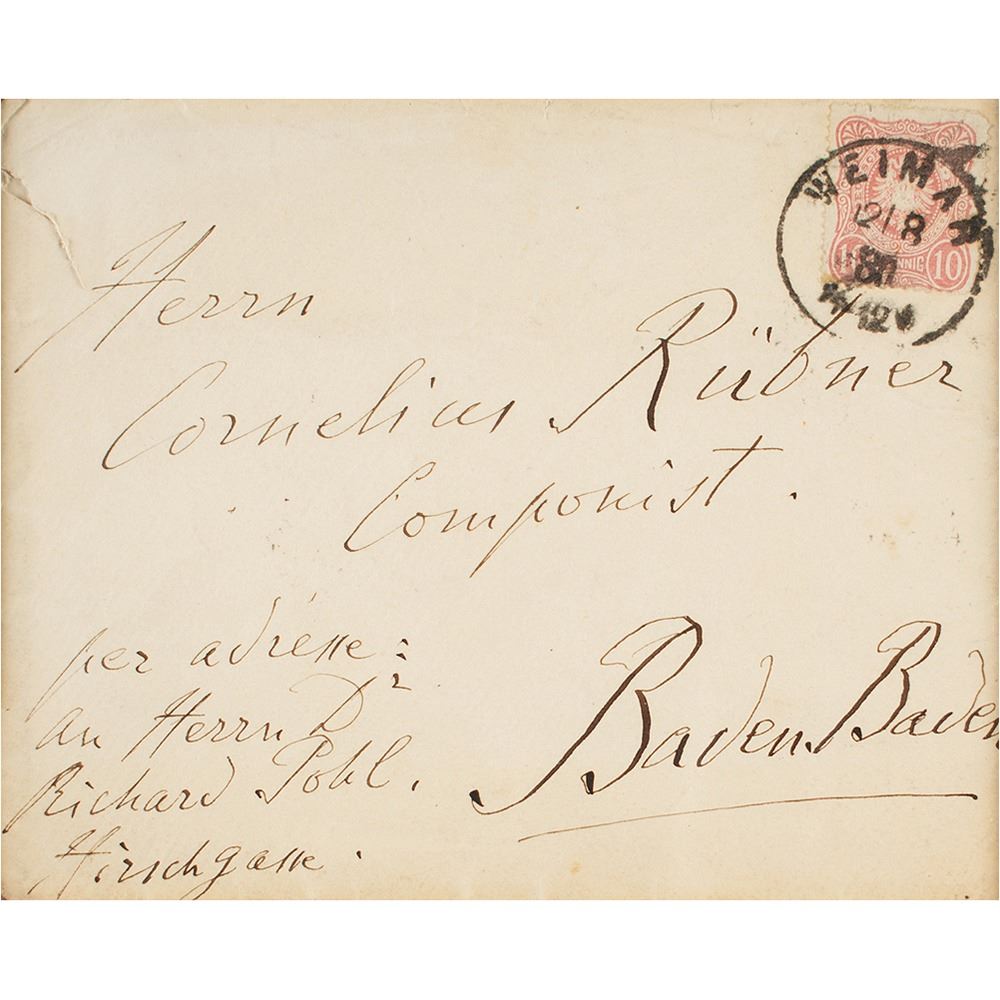 WEIMAR
12 8
80
12
PFENNIG 10
Herrn
Cornelius Rübner
Componist.
per adresse:
an Herrn Dr
Richard Pohl.
Hirschgasse.
Baden Baden